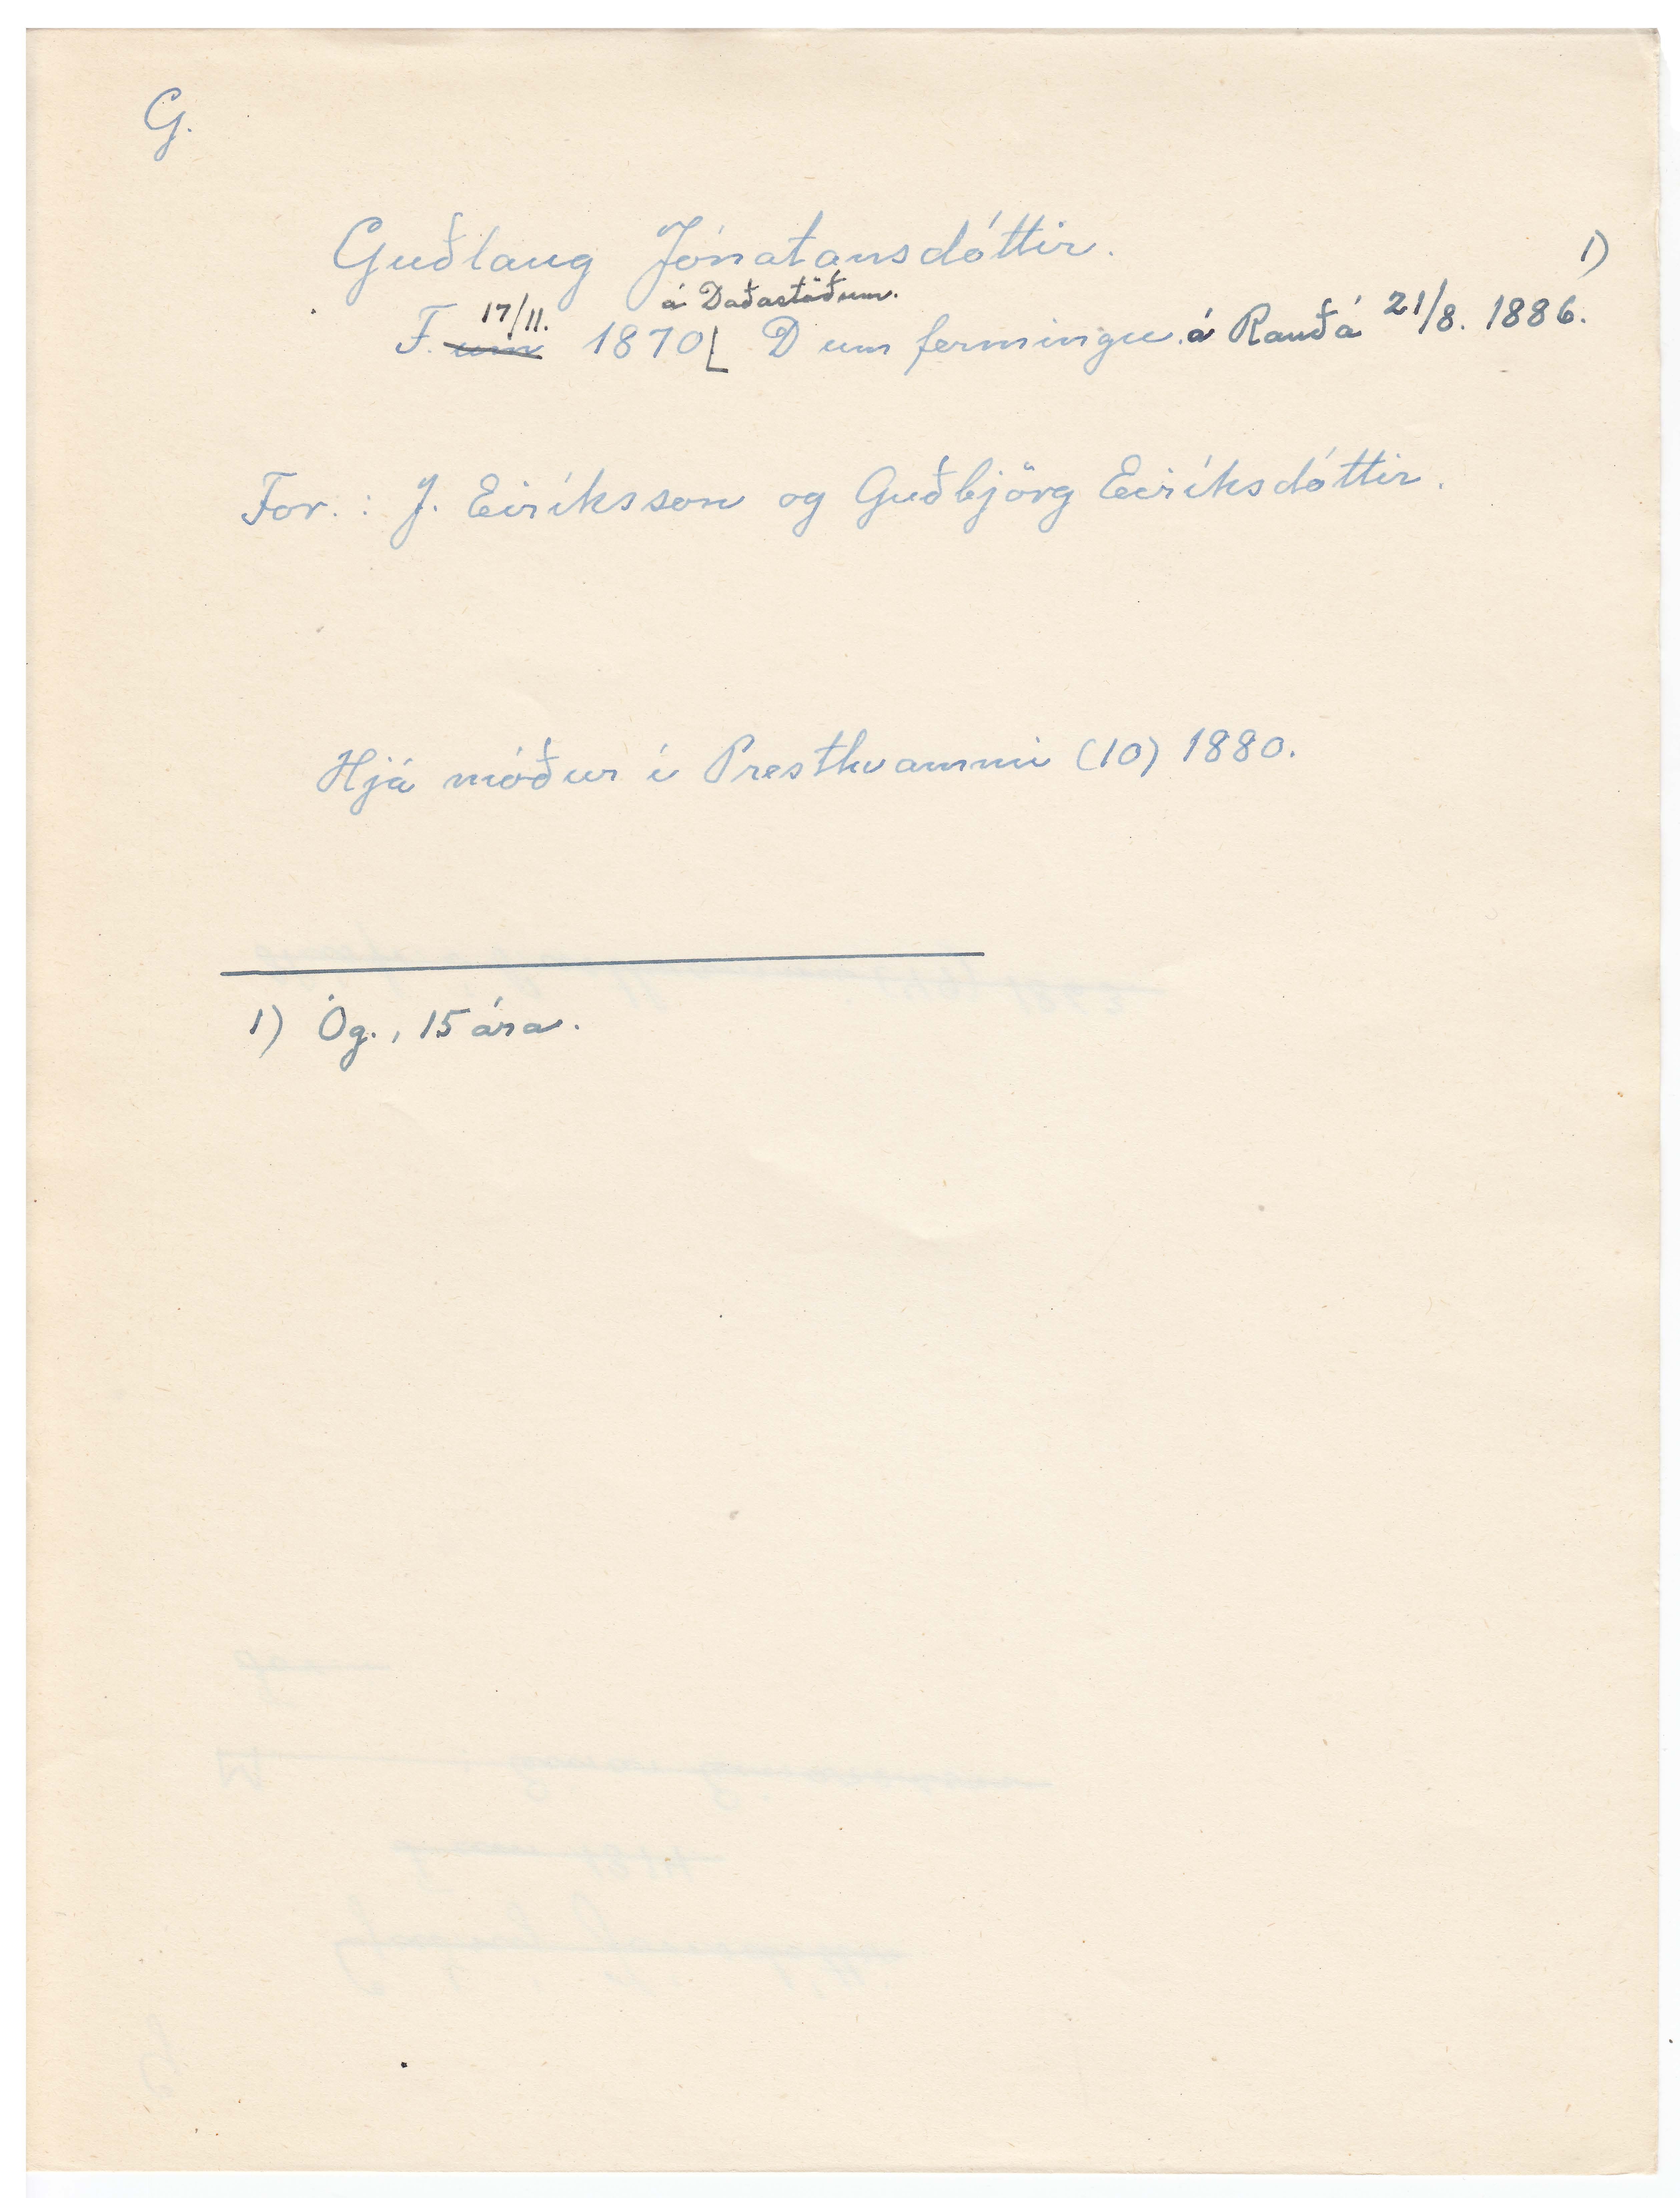 G.
Guðlaug Jónatansdóttir.
1)
17/11. á Daðastöðum.
F. um 1870 D um fermingu. á Rauðá 21/8. 1886.
For. : J. Eiríksson og Guðbjörg Eiríksdóttir.
Hjá móður í Presthvammi (10) 1880.
1) Óg., 15 ára.